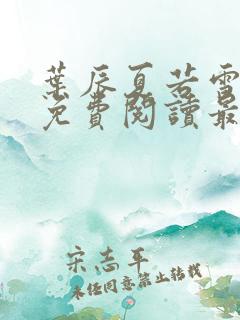 葉辰夏若雪
免費閱讀最
宋志平
未經同意禁止轉載